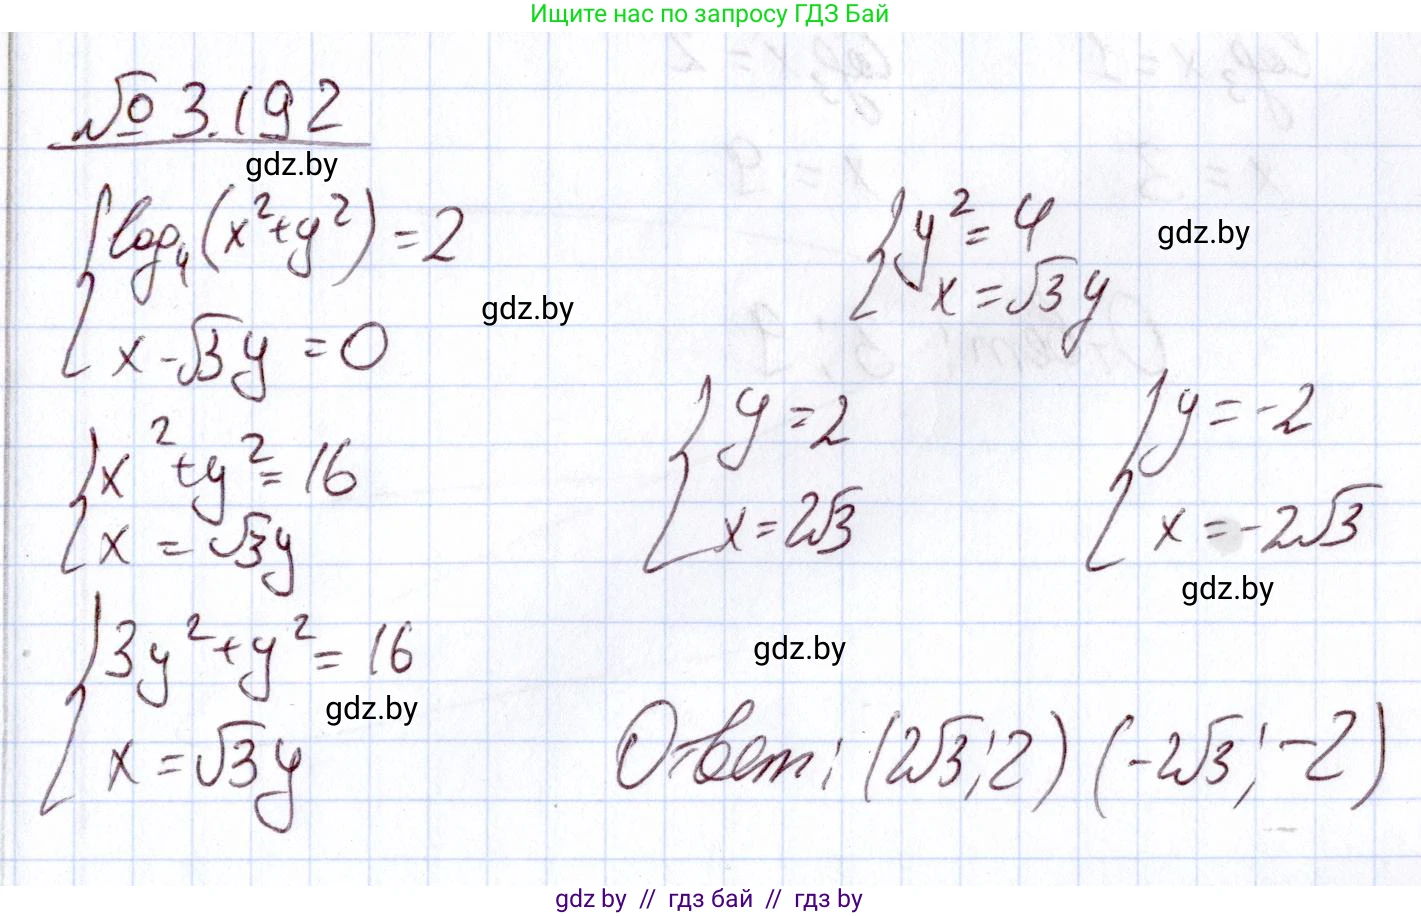 Ищите нас по запросу ГДЗ Бай
№ 3.192
gdz.by
log₄(x²+y²) = 2
x-√3y = 0
gdz.by
x²+y² = 16
x = √3y
3y²+y² = 16
gdz.by
x = √3y
y² = 4
gdz.by
x = √3y
y = 2
x = 2√3
y = -2
x = -2√3
gdz.by
gdz.by
Ответ: (2√3; 2) (-2√3; -2)
gdz.by // гдз бай // гдз by